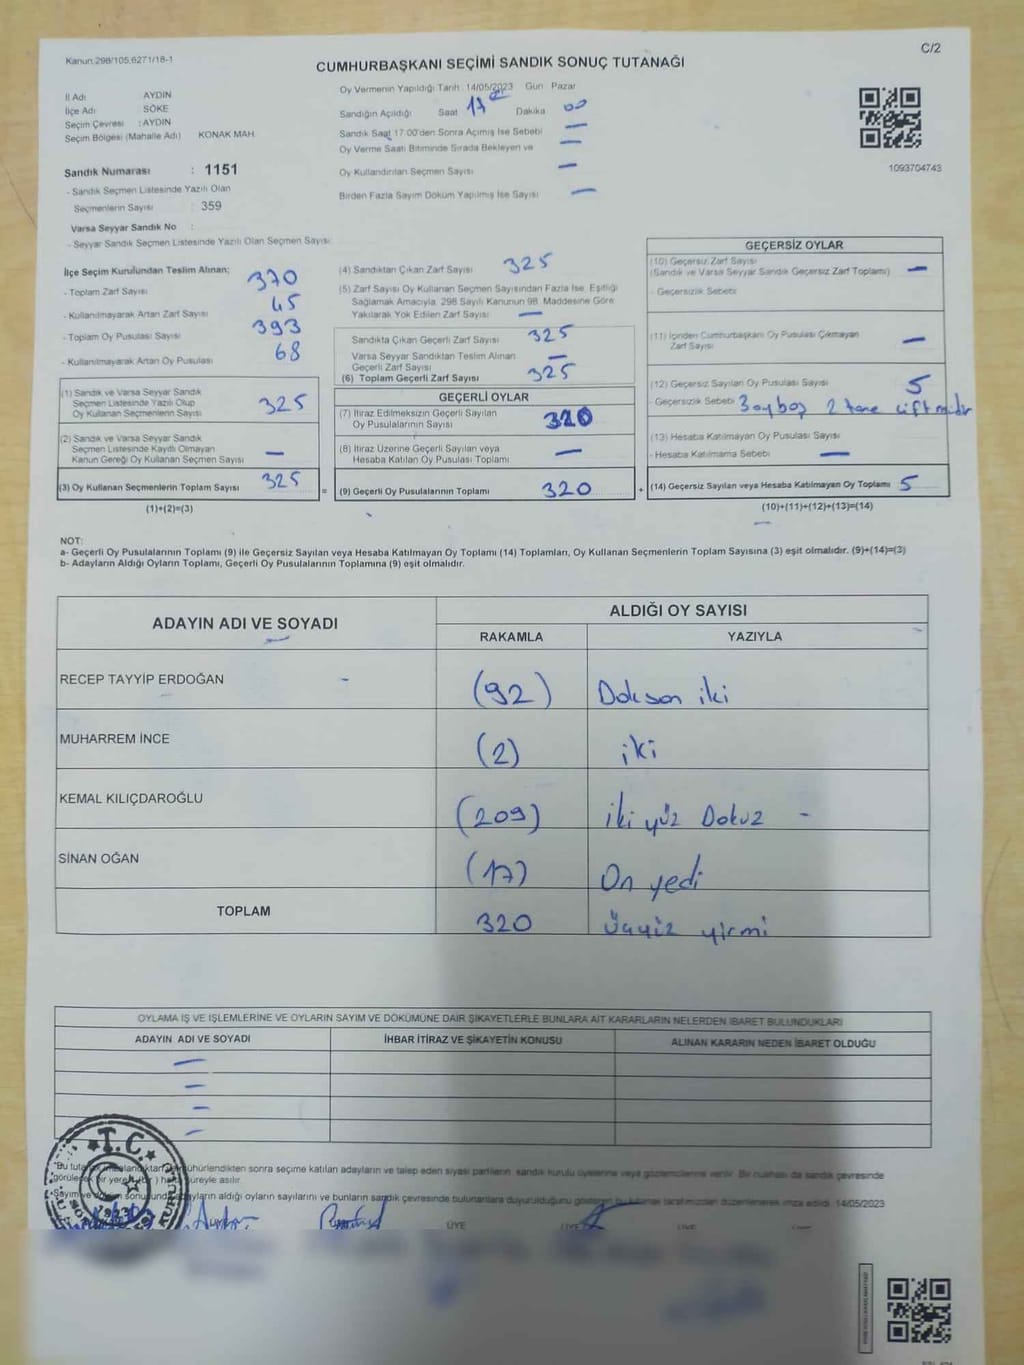 C/2
Kanun.298/105,6271/18-1
CUMHURBAŞKANI SEÇİMİ SANDIK SONUÇ TUTANAĞI
İl Adı AYDIN
İlçe Adı SÖKE
Seçim Çevresi : AYDIN
Seçim Bölgesi (Mahalle Adı) KONAK MAH.
Sandık Numarası : 1151
- Sandık Seçmen Listesinde Yazılı Olan
Seçmenlerin Sayısı 359
Varsa Seyyar Sandık No :
- Seyyar Sandık Seçmen Listesinde Yazılı Olan Seçmen Sayısı
Oy Vermenin Yapıldığı Tarih : 14/05/2023 Gün Pazar
Sandığın Açıldığı Saat 17 Dakika 00
Sandık Saat 17.00'den Sonra Açılmış İse Sebebi —
Oy Verme Saati Bitiminde Sırada Bekleyen ve —
Oy Kullandırılan Seçmen Sayısı —
Birden Fazla Sayım Döküm Yapılmış İse Sayısı —
1093704743
İlçe Seçim Kurulundan Teslim Alınan;
- Toplam Zarf Sayısı 370
- Kullanılmayarak Artan Zarf Sayısı 45
- Toplam Oy Pusulası 393
- Kullanılmayarak Artan Oy Pusulası 68
(1) Sandık ve Varsa Seyyar Sandık
Seçmen Listesinde Yazılı Olup
Oy Kullanan Seçmenlerin Sayısı 325
(2) Sandık ve Varsa Seyyar Sandık
Seçmen Listesinde Kayıtlı Olmayan
Kanun Gereği Oy Kullanan Seçmen Sayısı —
(3) Oy Kullanan Seçmenlerin Toplam Sayısı 325
(1)+(2)=(3)
(4) Sandıktan Çıkan Zarf Sayısı 325
(5) Zarf Sayısı Oy Kullanan Seçmen Sayısından Fazla İse, Eşitliği
Sağlamak Amacıyla, 298 Sayılı Kanunun 98. Maddesine Göre
Yakılarak Yok Edilen Zarf Sayısı —
Sandıkta Çıkan Geçerli Zarf Sayısı 325
Varsa Seyyar Sandıktan Teslim Alınan
Geçerli Zarf Sayısı —
(6) Toplam Geçerli Zarf Sayısı 325
GEÇERLİ OYLAR
(7) İtiraz Edilmeksizin Geçerli Sayılan
Oy Pusulalarının Sayısı 320
(8) İtiraz Üzerine Geçerli Sayılan veya
Hesaba Katılan Oy Pusulası Toplamı —
= (9) Geçerli Oy Pusulalarının Toplamı 320
GEÇERSİZ OYLAR
(10) Geçersiz Zarf Sayısı
(Sandık ve Varsa Seyyar Sandık Geçersiz Zarf Toplamı) —
- Geçersizlik Sebebi
(11) İçinden Cumhurbaşkanı Oy Pusulası Çıkmayan
Zarf Sayısı —
(12) Geçersiz Sayılan Oy Pusulası Sayısı 5
- Geçersizlik Sebebi 3 oy boş 2 tane çift mühür
(13) Hesaba Katılmayan Oy Pusulası Sayısı
- Hesaba Katılmama Sebebi —
+ (14) Geçersiz Sayılan veya Hesaba Katılmayan Oy Toplamı 5
(10)+(11)+(12)+(13)=(14)
NOT:
a- Geçerli Oy Pusulalarının Toplamı (9) ile Geçersiz Sayılan veya Hesaba Katılmayan Oy Toplamı (14) Toplamları, Oy Kullanan Seçmenlerin Toplam Sayısına (3) eşit olmalıdır. (9)+(14)=(3)
b- Adayların Aldığı Oyların Toplamı, Geçerli Oy Pusulalarının Toplamına (9) eşit olmalıdır.
ADAYIN ADI VE SOYADI ALDIĞI OY SAYISI
RAKAMLA YAZIYLA
RECEP TAYYİP ERDOĞAN (92) Doksan iki
MUHARREM İNCE (2) iki
KEMAL KILIÇDAROĞLU (209) iki yüz Dokuz -
SİNAN OĞAN (17) On yedi
TOPLAM 320 üçyüz yirmi
OYLAMA İŞ VE İŞLEMLERİNE VE OYLARIN SAYIM VE DÖKÜMÜNE DAİR ŞİKAYETLERLE BUNLARA AİT KARARLARIN NELERDEN İBARET BULUNDUKLARI
ADAYIN ADI VE SOYADI İHBAR İTİRAZ VE ŞİKAYETİN KONUSU ALINAN KARARIN NEDEN İBARET OLDUĞU
—
—
—
—
T.C.
"Bu mühürlendikten sonra seçime katılan adayların ve talep eden siyasi partilerin sandık kurulu üyelerine veya gözlemcilerine verilir. Bir nüshası da sandık çevresinde
görülecek bir yere süreyle asılır.
Sayım ve döküm sonucunda adayların aldığı oyların sayılarını ve bunların sandık çevresinde bulunanlara duyurulduğunu gösteren tarafımızdan düzenlenerek imza edildi. 14/05/2023
ÜYE ÜYE ÜYE